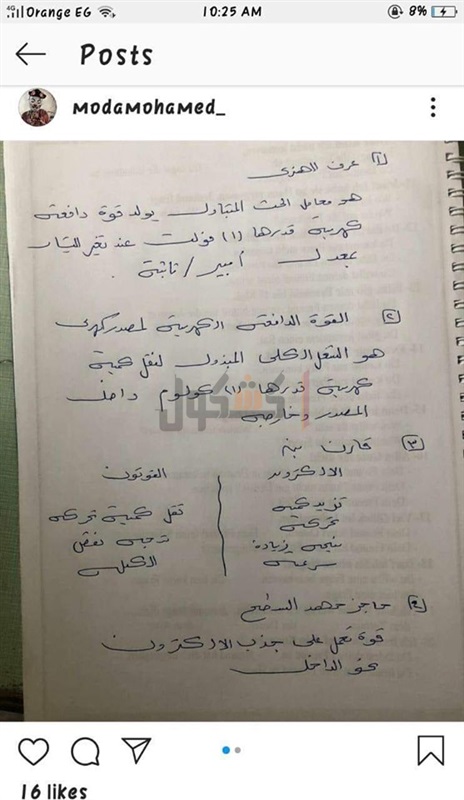 Orange EG
10:25 AM
8%
Posts
modamohamed_
١ عرف الهنرى
هو معامل الحث المتبادل يولد قوة دافعة
كهربية قدرها (١) فولت عند تغير التيار
بمعدل أمبير / ثانية .
٢ القوة الدافعة الكهربية لمصدر كهربى
هو الشغل الكلى المبذول لنقل كمية
كهربية قدرها (١) كولوم داخل
المصدر وخارجه
كشكول
٣ قارن بين
الالكترون الفوتون
تزيد كمية تقل كمية تحركه
تحركه نتيجة نقص
نتيجة زيادة الكتلة
سرعته
٤ حاجز جهد السطح
قوة تعمل على جذب الالكترون
نحو الداخل
16 likes